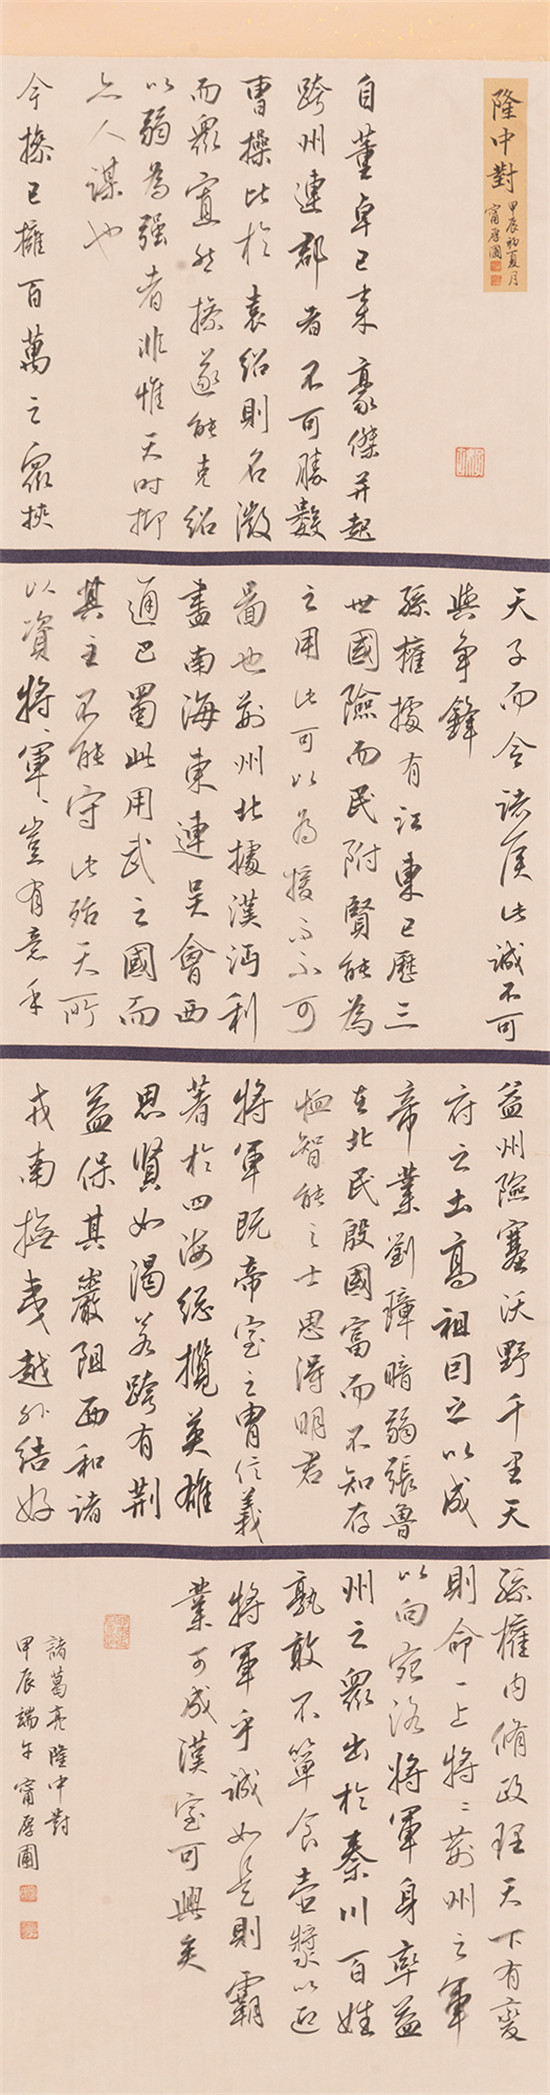 隆中對
甲辰初夏月
甯厚圃
自董卓已来豪傑并起
跨州連郡者不可勝數
曹操比於袁紹則名微
而衆寡然操遂能克紹
以弱為强者非惟天时抑
亦人謀也
今操已擁百萬之衆挾
天子而令诸侯此誠不可
與争鋒
孫權據有江東已歷三
世國險而民附賢能為
之用此可以為援而不可
圖也荆州北據漢沔利
盡南海東連吴會西
通巴蜀此用武之國而
其主不能守此殆天所
以資將〻軍〻豈有意乎
益州險塞沃野千里天
府之土高祖因之以成
帝業劉璋暗弱張魯
在北民殷國富而不知存
恤智能之士思得明君
將軍既帝室之胄信義
著於四海總攬英雄
思賢如渴若跨有荆
益保其巖阻西和諸
戎南撫夷越外结好
孫權内脩政理天下有變
則命一上將〻荆州之軍
以向宛洛將軍身率益
州之眾出於秦川百姓
孰敢不箪食壺漿以迎
將軍乎誠如是則霸
業可成漢室可興矣
諸葛亮隆中對
甲辰端午甯厚圃